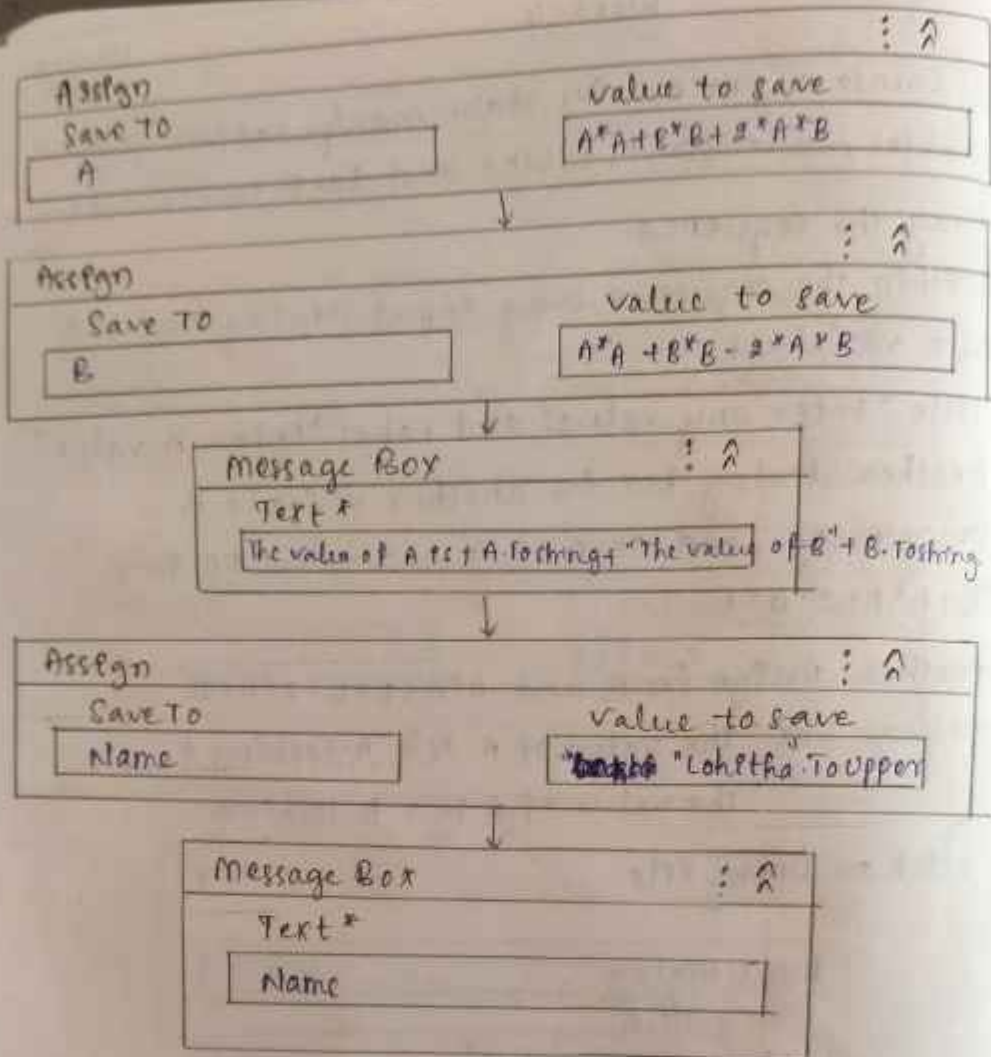 Assign
Save To
value to save
A
A*A+B*B+2*A*B
Assign
Save To
value to save
B
A*A +B*B - 2*A*B
Message Box
Text *
The value of A is + A.Tostring+ "The value of B"+ B.Tostring
Assign
Save To
value to save
Name
"Lohitha".ToUpper
Message Box
Text *
Name